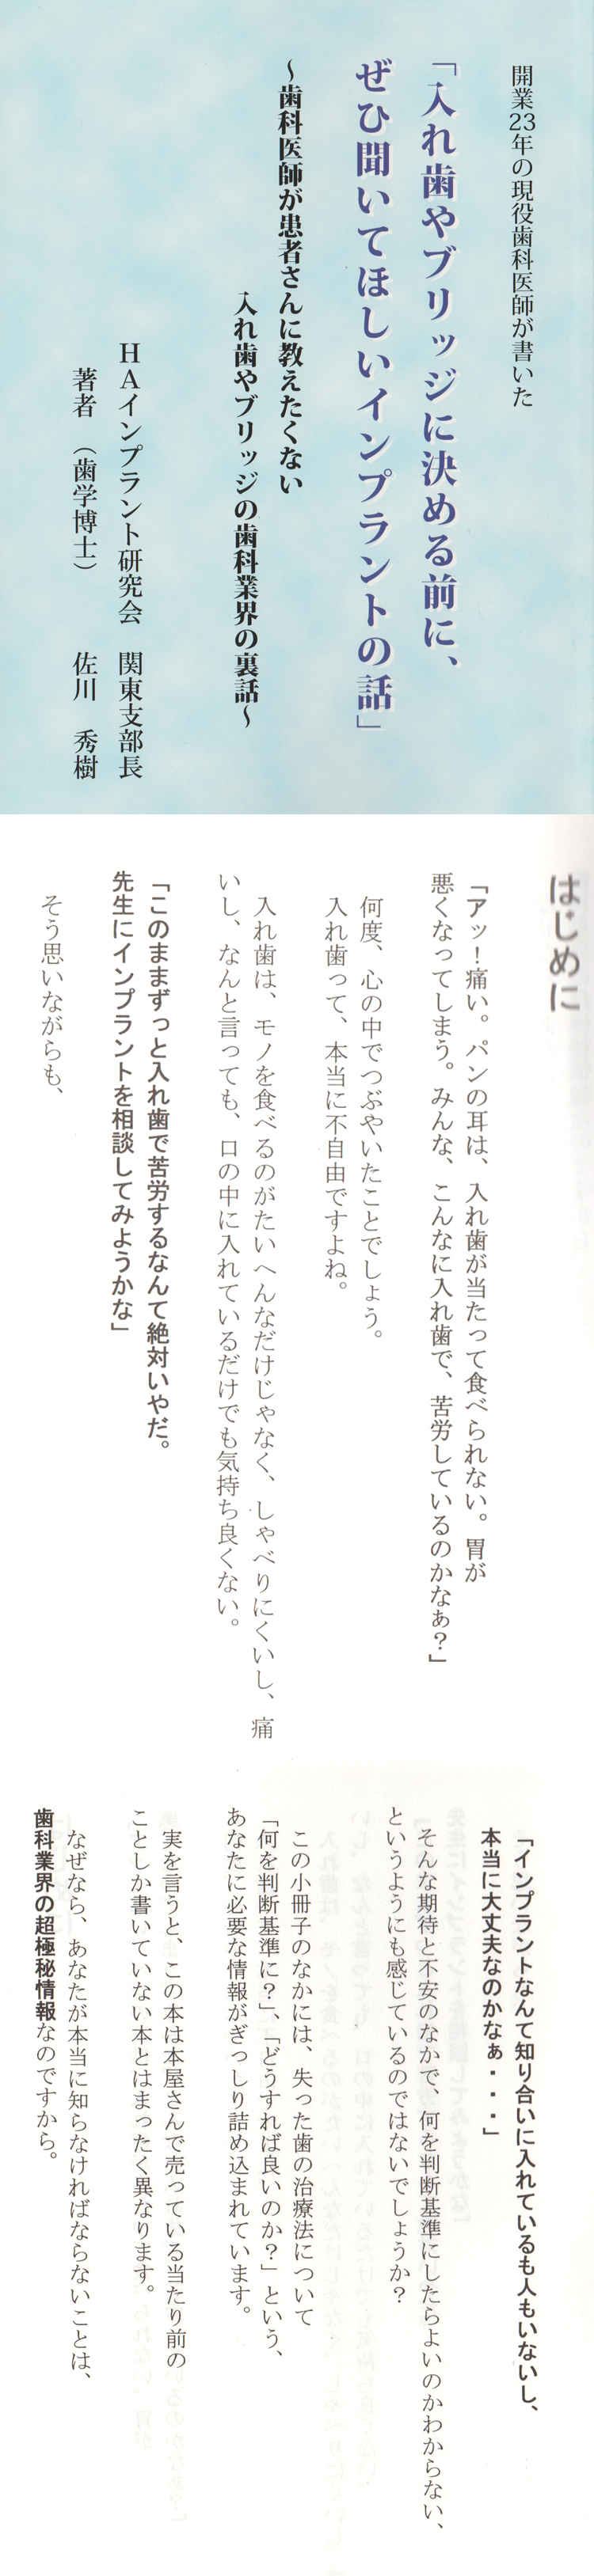 開業23年の現役歯科医師が書いた
「入れ歯やブリッジに決める前に、
ぜひ聞いてほしいインプラントの話」
～歯科医師が患者さんに教えたくない
入れ歯やブリッジの歯科業界の裏話～
HAインプラント研究会　関東支部長
著者　（歯学博士）　佐川　秀樹
はじめに
「アッ！痛い。パンの耳は、入れ歯が当たって食べられない。胃が
悪くなってしまう。みんな、こんなに入れ歯で、苦労しているのかなぁ？」
何度、心の中でつぶやいたことでしょう。
入れ歯って、本当に不自由ですよね。
入れ歯は、モノを食べるのがたいへんなだけじゃなく、しゃべりにくいし、痛
いし、なんと言っても、口の中に入れているだけでも気持ち良くない。
「このままずっと入れ歯で苦労するなんて絶対いやだ。
先生にインプラントを相談してみようかな」
そう思いながらも、
「インプラントなんて知り合いに入れているも人もいないし、
本当に大丈夫なのかなぁ・・・」
そんな期待と不安のなかで、何を判断基準にしたらよいのかわからない、
というようにも感じているのではないでしょうか？
この小冊子のなかには、失った歯の治療法について
「何を判断基準に？」、「どうすれば良いのか？」という、
あなたに必要な情報がぎっしり詰め込まれています。
実を言うと、この本は本屋さんで売っている当たり前の
ことしか書いていない本とはまったく異なります。
なぜなら、あなたが本当に知らなければならないことは、
歯科業界の超極秘情報なのですから。